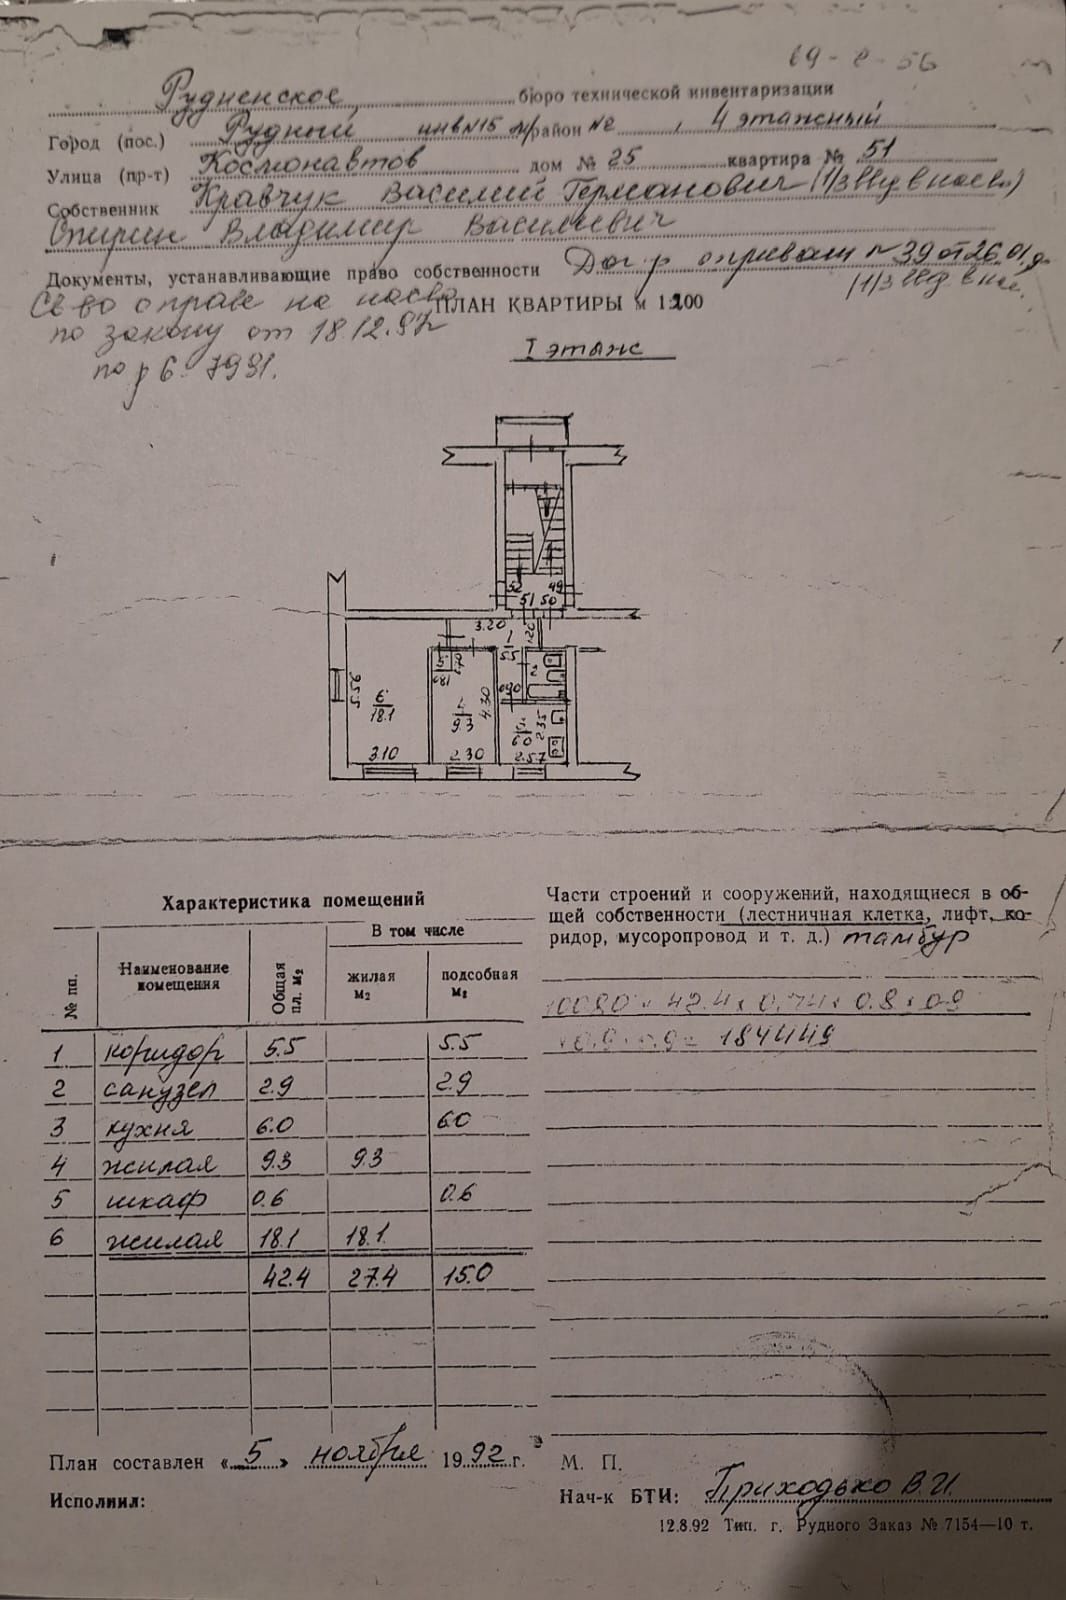 69-2-56
Рудненское бюро технической инвентаризации
Город (пос.) Рудный инв№15 м/район №2, 4 этажный
Улица (пр-т) Космонавтов дом № 25 квартира № 51
Собственник Кравчук Василий Германович (1/3
Спирин Владимир Васильевич
Документы, устанавливающие право собственности Дог р о приват №39 от 26.01.
Св во о праве на насл во ПЛАН КВАРТИРЫ М 1:200 (1/3
по закону от 18.12.97г
по р 6-7991.
I этаж
52 49
51 50
3.20 1.20
1
5.5
5
0.81 0.70
2
5.56
6
18.1
4.30
9.3
0.90
6.0
2.35
3.10 2.30 2.57
Характеристика помещений
№ пп. Наименование помещения Общая пл. м2 В том числе жилая м2 подсобная м2
1 коридор 5.5 5.5
2 санузел 2.9 2.9
3 кухня 6.0 6.0
4 жилая 9.3 9.3
5 шкаф 0.6 0.6
6 жилая 18.1 18.1
42.4 27.4 15.0
Части строений и сооружений, находящиеся в об-
щей собственности (лестничная клетка, лифт, ко-
ридор, мусоропровод и т. д.) тамбур
42.4 х 0.74 х 0.8 х 0.9
х 0.9 х 0.9 = 184449
План составлен «5» ноября 1992 г. М. П.
Исполнил:
Нач-к БТИ: Приходько В.И.
12.8.92 Тип. г. Рудного Заказ № 7154—10 т.